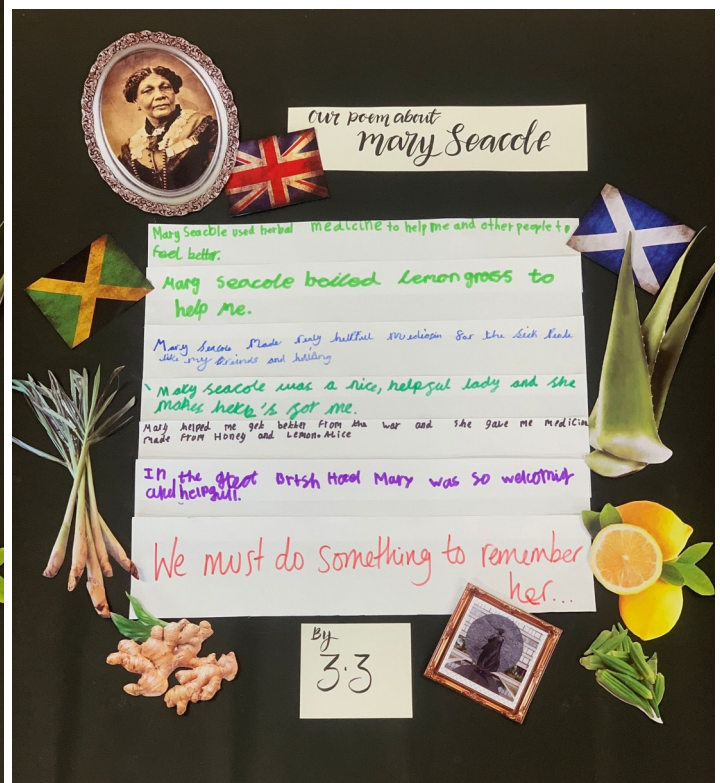 Our poem about
Mary Seacole
Mary Seacole used herbal medicine to help me and other people to
feel better.
Mary Seacole boiled lemon grass to
help me.
Mary Seacole Made realy helfull for the Sick
like my friends and
Mary seacole was a nice, helpful lady and she
makes for me.
Mary helped me get better from the war and she gave me medicin
made from Honey and Lemon. Alice
In the Mary was so welcoming
and helpfull.
We must do something to remember
her...
By
3.3